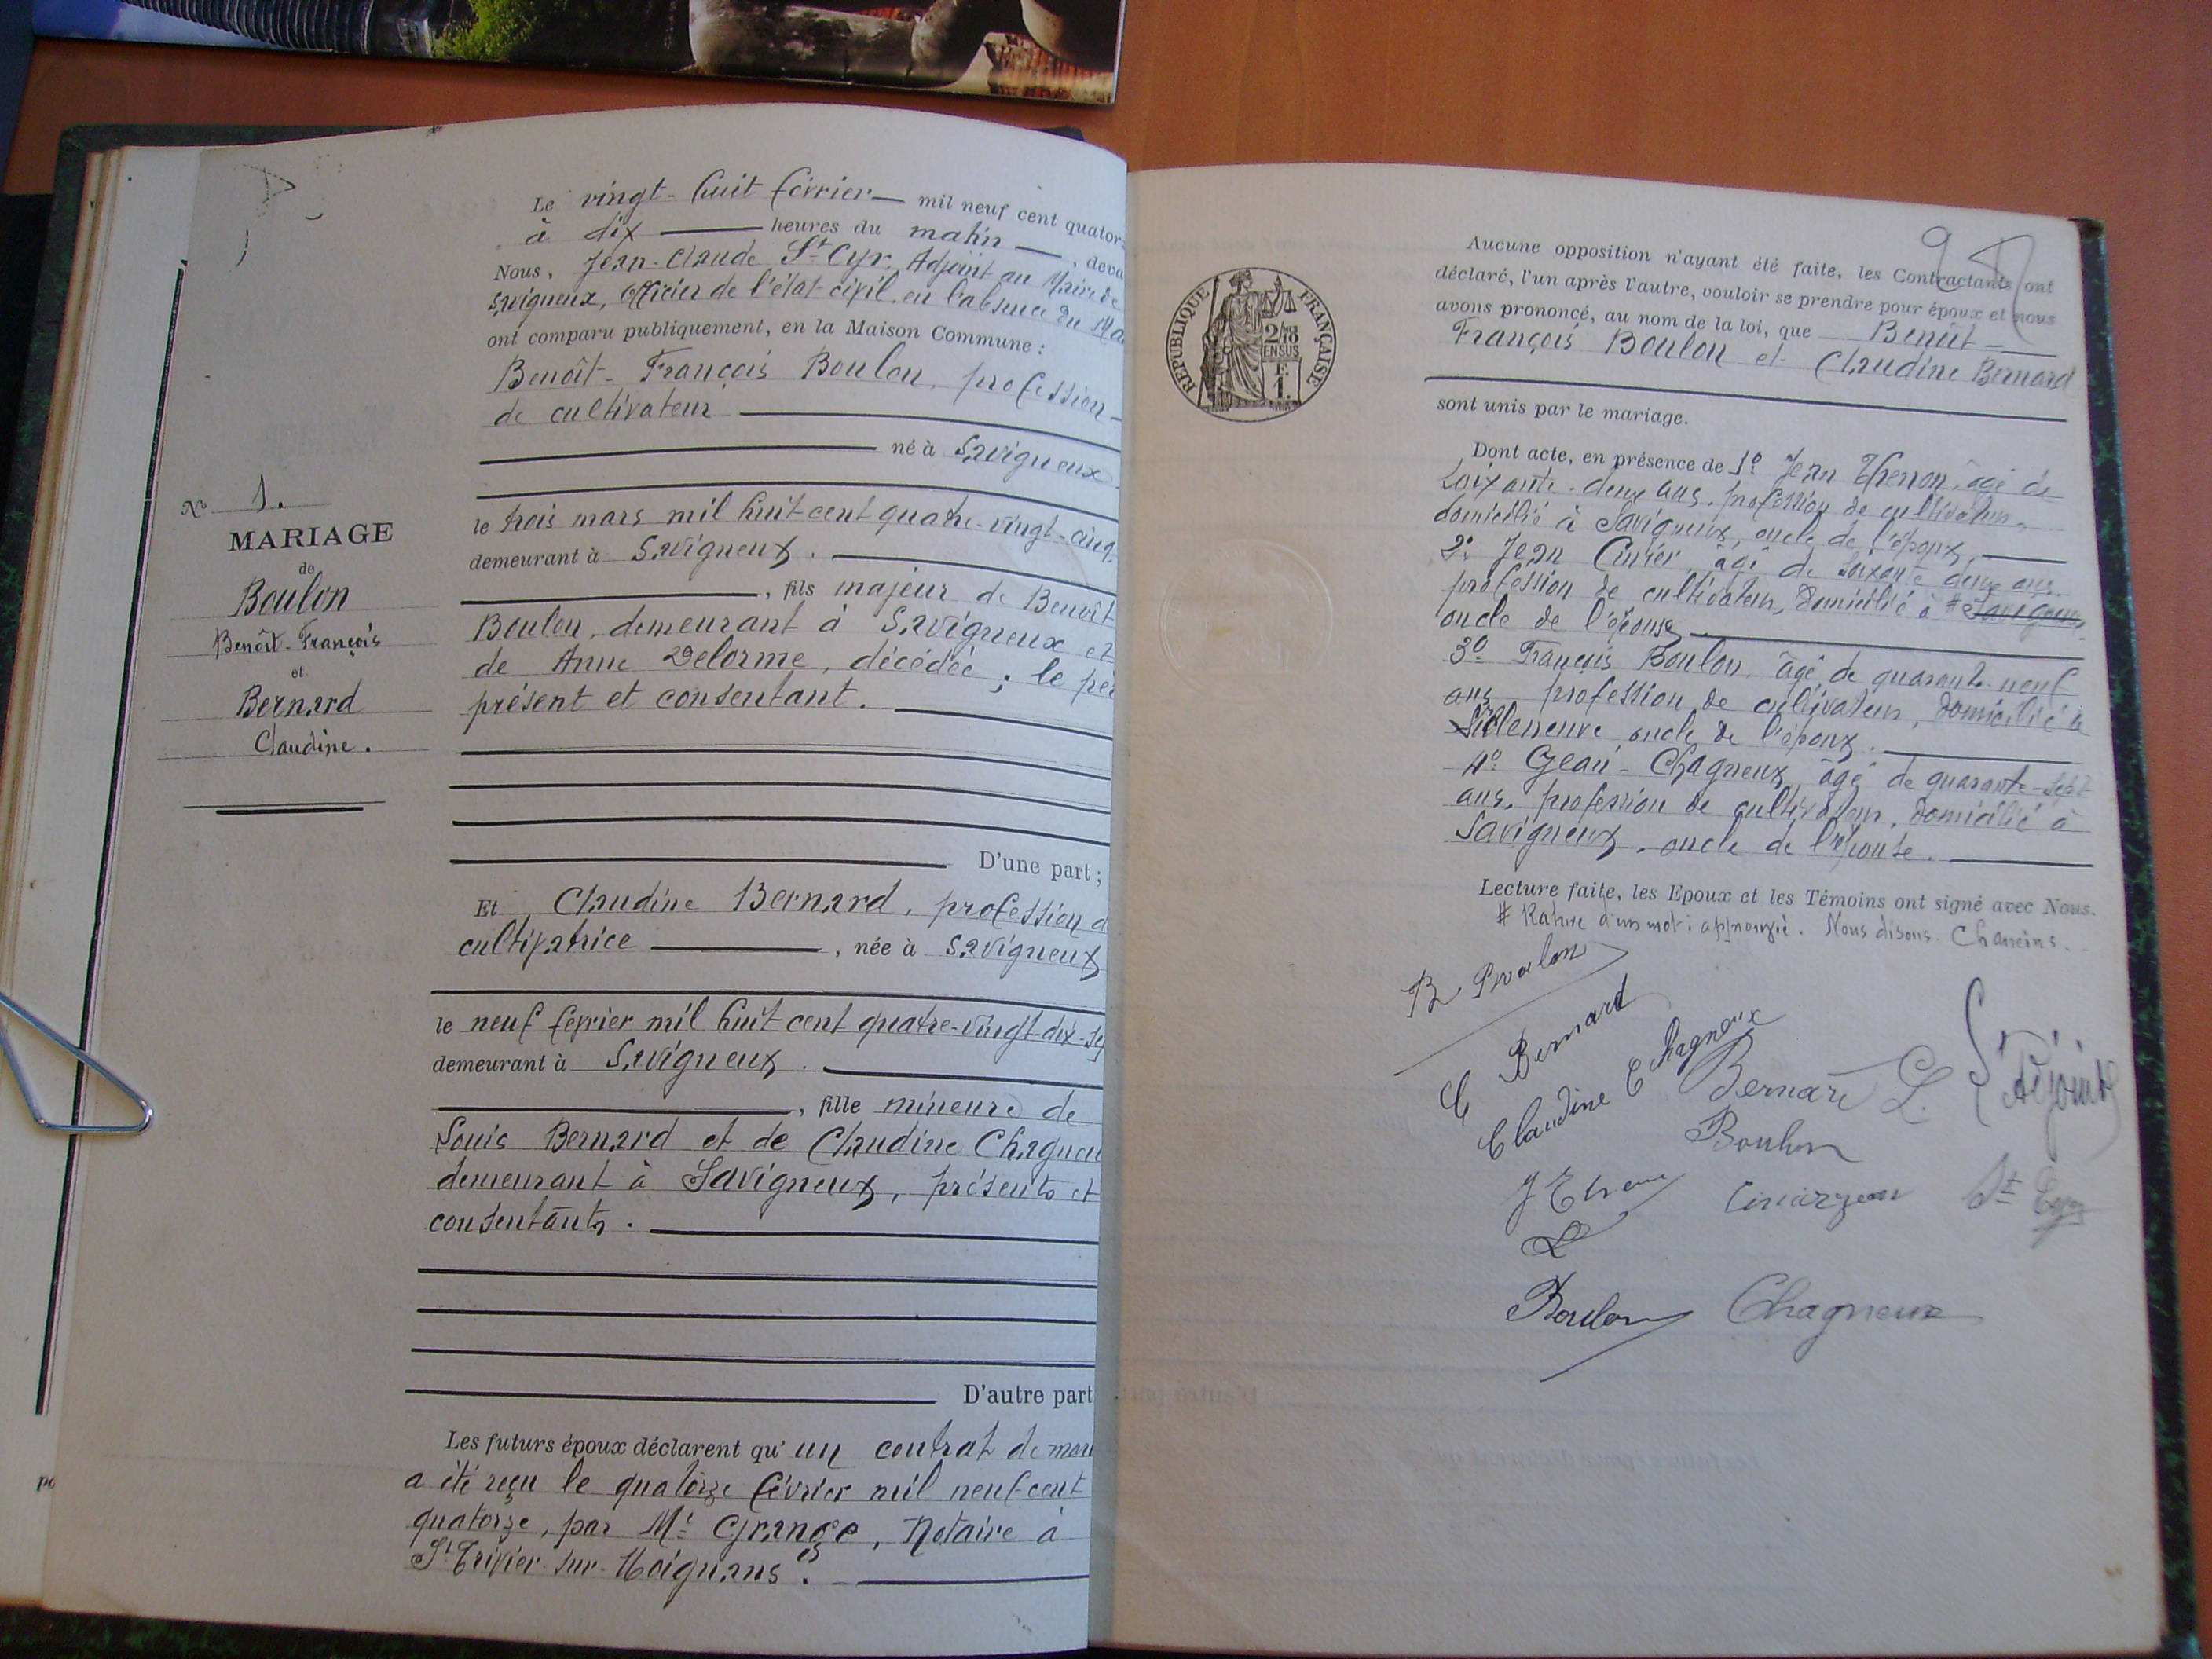 Le vingt-huit février mil neuf cent quator
à dix heures du matin, deva
Nous, Jean-Claude St-Cyr, Adjoint au Maire de
Savigneux, Officier de l'état-civil, en l'absence du Ma
ont comparu publiquement, en la Maison Commune :
Benoît-François Boulon, profession
de cultivateur
né à Savigneux
le trois mars mil huit cent quatre-vingt-cinq
demeurant à Savigneux.
, fils majeur de Benoît
Boulon, demeurant à Savigneux et
de Anne Delorme, décédée ; le pèr
présent et consentant.
D'une part ;
No 1.
MARIAGE
de
Boulon
Benoît-François
et
Bernard
Claudine.
Et Claudine Bernard, profession d
cultivatrice, née à Savigneux
le neuf février mil huit cent quatre-vingt-dix-se
demeurant à Savigneux.
, fille mineure de
Louis Bernard et de Claudine Chagneu
demeurant à Savigneux, présents et
consentants.
D'autre part
Les futurs époux déclarent qu'un contrat de mari
a été reçu le quatorze février mil neuf cent
quatorze, par Me Grange, Notaire à
St Trivier-sur-Moignans.
RÉPUBLIQUE FRANÇAISE
2/18
EN SUS
F.
1.
Aucune opposition n'ayant été faite, les Contractants ont
déclaré, l'un après l'autre, vouloir se prendre pour époux et nous
avons prononcé, au nom de la loi, que Benoît-
François Boulon et Claudine Bernard
sont unis par le mariage.
Dont acte, en présence de 1º Jean Thenon, âgé de
soixante-deux ans, profession de cultivateur,
domicilié à Savigneux, oncle de l'époux,
2º Jean Cinier, âgé de soixante deux ans
profession de cultivateur, domicilié à # Savigneux,
oncle de l'épouse
3º François Boulon âgé de quarante-neuf
ans, profession de cultivateur, domicilié à
Villeneuve, oncle de l'époux.
4º Jean Chagneux, âgé de quarante-sept
ans, profession de cultivateur, domicilié à
Savigneux, oncle de l'épouse.
Lecture faite, les Epoux et les Témoins ont signé avec Nous.
# Rature d'un mot : approuvée. Nous disons Chaneins.
B Boulon
C Bernard
Claudine Chagneux
Bernard L.
L'Adjoint
Boulon
St Cyr
Boulon
Chagneux